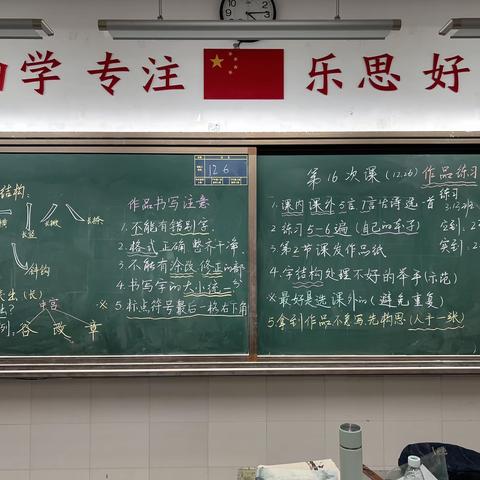 学 专 注
乐 思 好
12 6
结构:
长横
斜钩
(长)
中宫
谷 改 章
作品书写注意
1. 不能有错别字.
2. 格式正确 整齐干净.
3. 不能有涂改修正的部
4. 书写字的大小统一
※ 5. 标点符号最后一格右下角
第16次课(12.26) 作品练习
1. 课内 课外 5言 7言古诗选一首
练习
2. 练习5~6遍(自己的本子)
3. 第2节课发作品纸
4. 字结构处理不好的举手(示范)
※ 最好是选课外的(避免重复)
5. 拿到作品不急写,先构思(人手一张)
实到